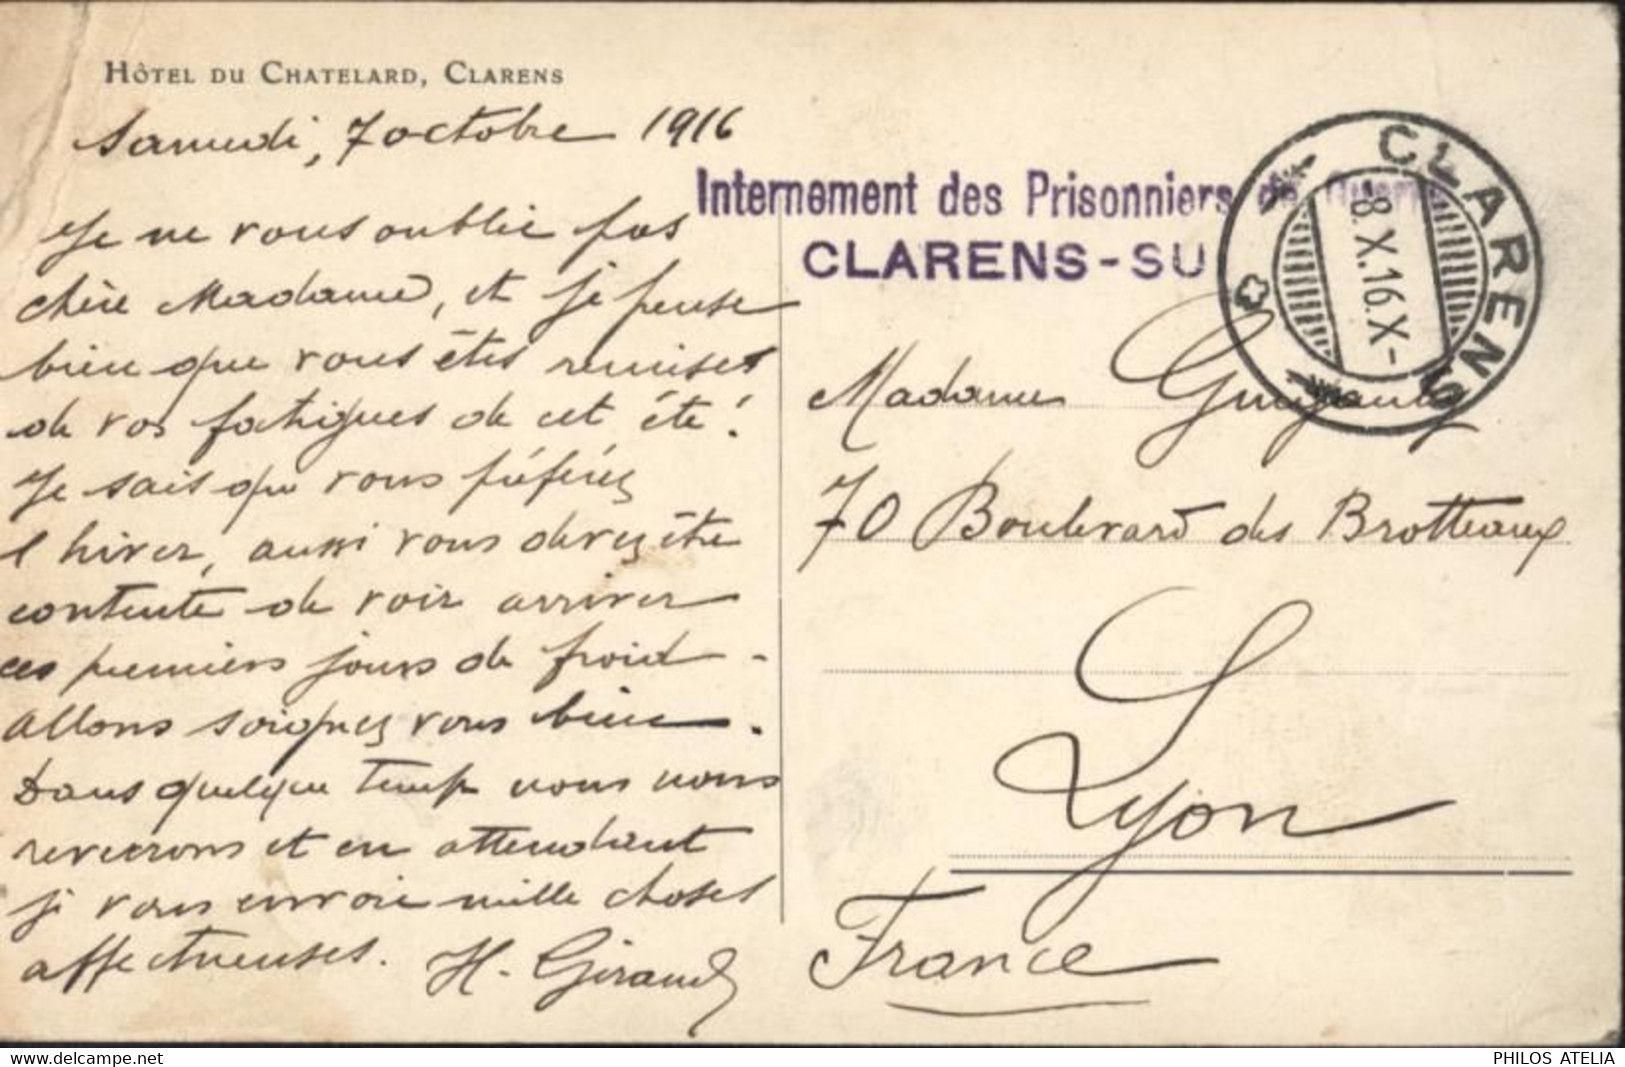 HÔTEL DU CHATELARD, CLARENS
Samedi, 7 octobre 1916
Je ne vous oublie pas
chère Madame, et je pense
bien que vous êtes remises
de vos fatigues de cet été!
Je sais que vous préférez
l'hiver, aussi vous devez être
contente de voir arriver
ces premiers jours de froid -
allons soignez vous bien.
Dans quelque temps nous nous
reverrons et en attendant
je vous envoie mille choses
affectueuses. H. Giraud
Internement des Prisonniers de Guerre
CLARENS-SU
CLARENS
-8.X.16.X-
Madame
70 Boulevard des Brotteaux
Lyon
France
delcampe.net
PHILOS ATELIA